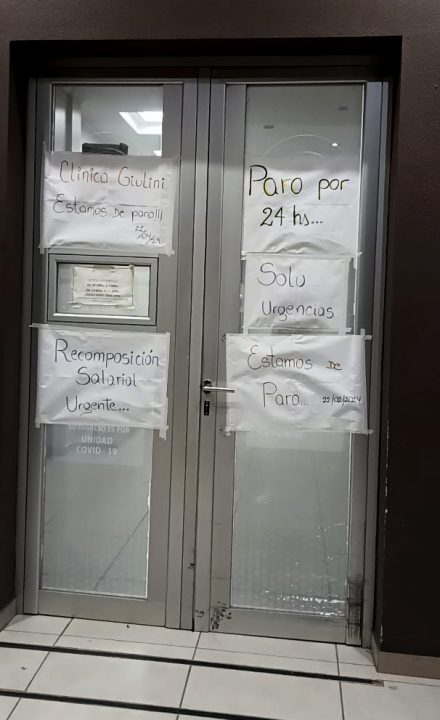 Clinica Giulini
Estamos de paro!!!
22/02/24
Recomposición
Salarial
Urgente...
SU INGRESO ES POR
UNIDAD
COVID - 19
Paro por
24 hs...
Solo
Urgencias
Estamos De
Paro... 22/02/2024